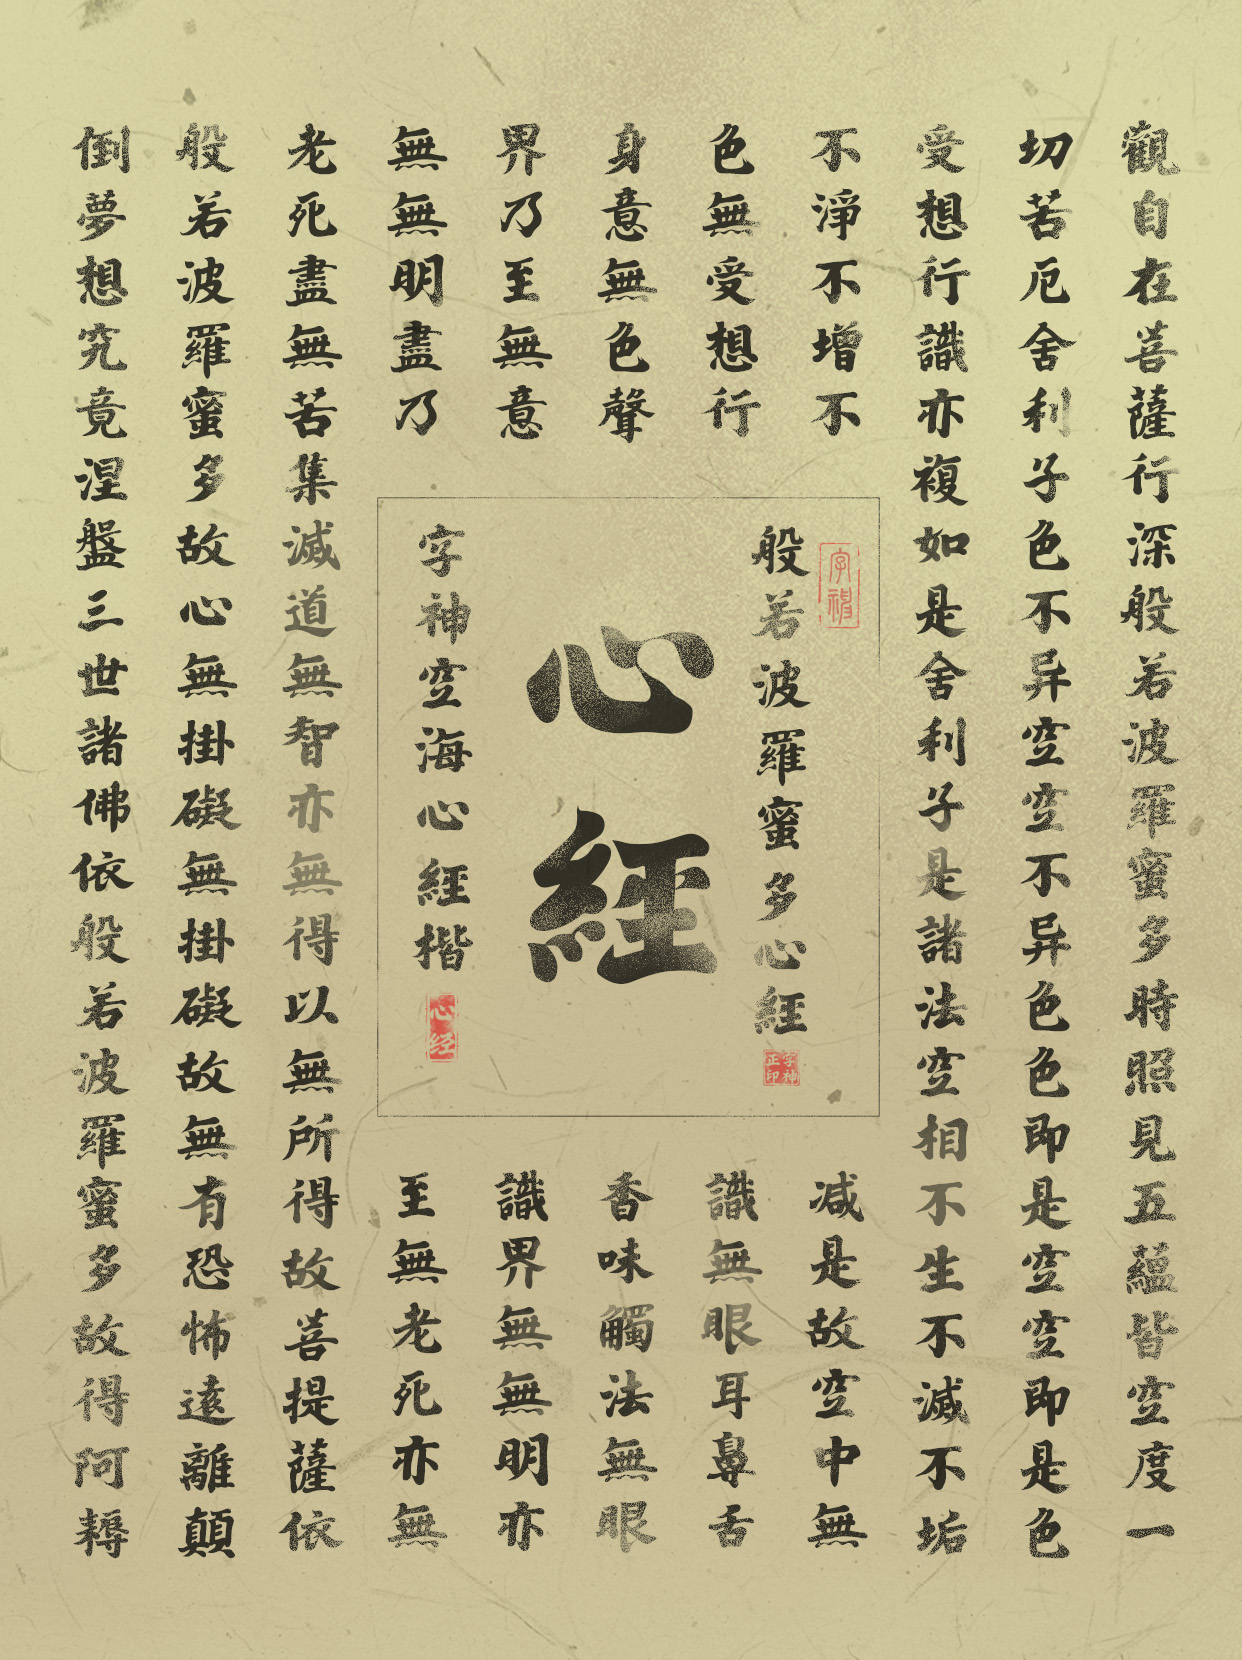 觀自在菩薩行深般若波羅蜜多時照見五蘊皆空度一
切苦厄舍利子色不异空空不异色色即是空空即是色
受想行識亦複如是舍利子是諸法空相不生不滅不垢
不淨不增不
减是故空中無
色無受想行
識無眼耳鼻舌
身意無色聲
香味觸法無眼
界乃至無意
識界無無明亦
無無明盡乃
至無老死亦無
老死盡無苦集滅道無智亦無得以無所得故菩提薩依
般若波羅蜜多故心無掛礙無掛礙故無有恐怖遠離顛
倒夢想究竟涅盤三世諸佛依般若波羅蜜多故得阿耨
般若波羅蜜多心經
字神
正印
心經
字神空海心經楷
心经